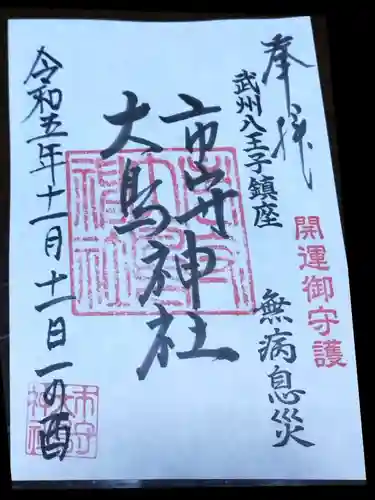 奉拝
武州八王子鎮座
開運御守護
無病息災
市守神社
大鳥神社
令和五年十一月十一日一の酉